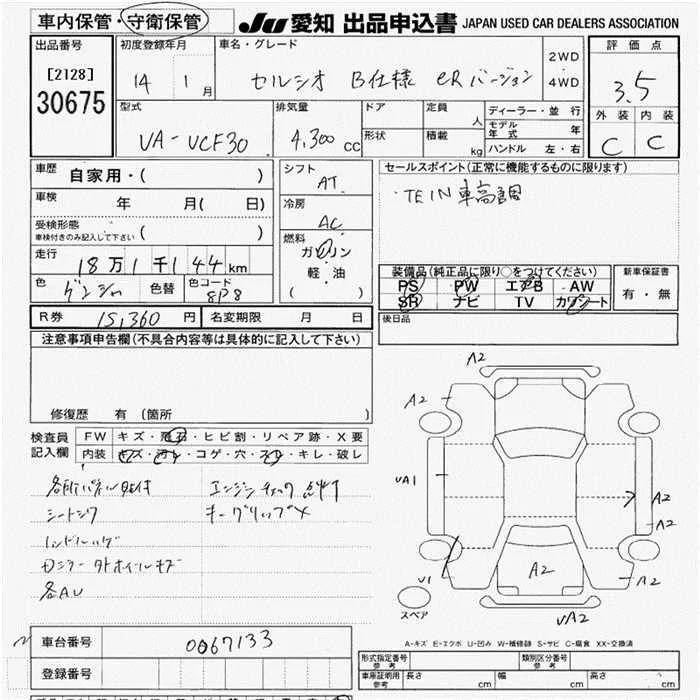 車内保管・守衛保管 JU 愛知 出品申込書 JAPAN USED CAR DEALERS ASSOCIATION
出品番号 初度登録年月 車名・グレード 2WD 評価点
[2128] 14 1月 セルシオ B仕様 eRバージョン 4WD 3.5
30675
型式 排気量 ドア 定員 人 ディーラー・並行 外装 内装
モデル年式 年
VA-UCF30 4,300cc 形状 積載 kg ハンドル 左・右 C C
車歴 自家用・( ) シフト セールスポイント(正常に機能するものに限ります)
AT
車検 年 月( 日) 冷房 ・TEIN車高調
AC
受検形態
車検付きのみ記入して下さい ( ) 燃料
走行 18万1千144km ガソリン
軽・油
( )
装備品(純正品に限り○をつけてください) 新車保証書
色 色替 色コード 8P8 PS PW エアB AW 有・無
SR ナビ TV カワシート
R券 15,360円 名変期限 月 日 後日品
注意事項申告欄(不具合内容等は具体的に記入して下さい)
修復歴 有(箇所 )
検査員 FW キズ・飛石・ヒビ割・リペア跡・X要
記入欄 内装 キズ・汚れ・コゲ・穴・スレ・キレ・破レ
エンジンチェック
シートシワ キーグリップX
A2
A2
UA1
A2
A2
U1
A2
A2
UA2
スペア
A-キズ E-エクボ U-凹み W-補修跡 S-サビ C-腐食 XX-交換済
車台番号 0067133
登録番号
形式指定番号 参考 類別区分番号 参考
車庫証明用 参考 長さ cm 幅 cm 高さ cm